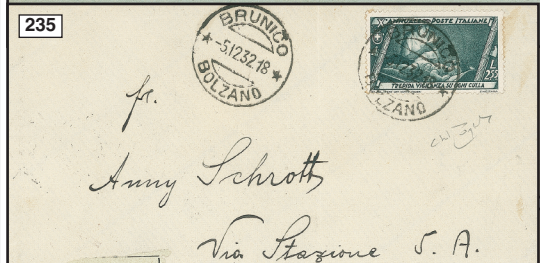 235
BRUNICO
-5.12.32.18
BOLZANO
POSTE ITALIANE
L 2,55
TREPIDA VIGILANZA SU OGNI CULLA
BOLZANO
fr.
Anny Schrott
Via Stazione 5. A.